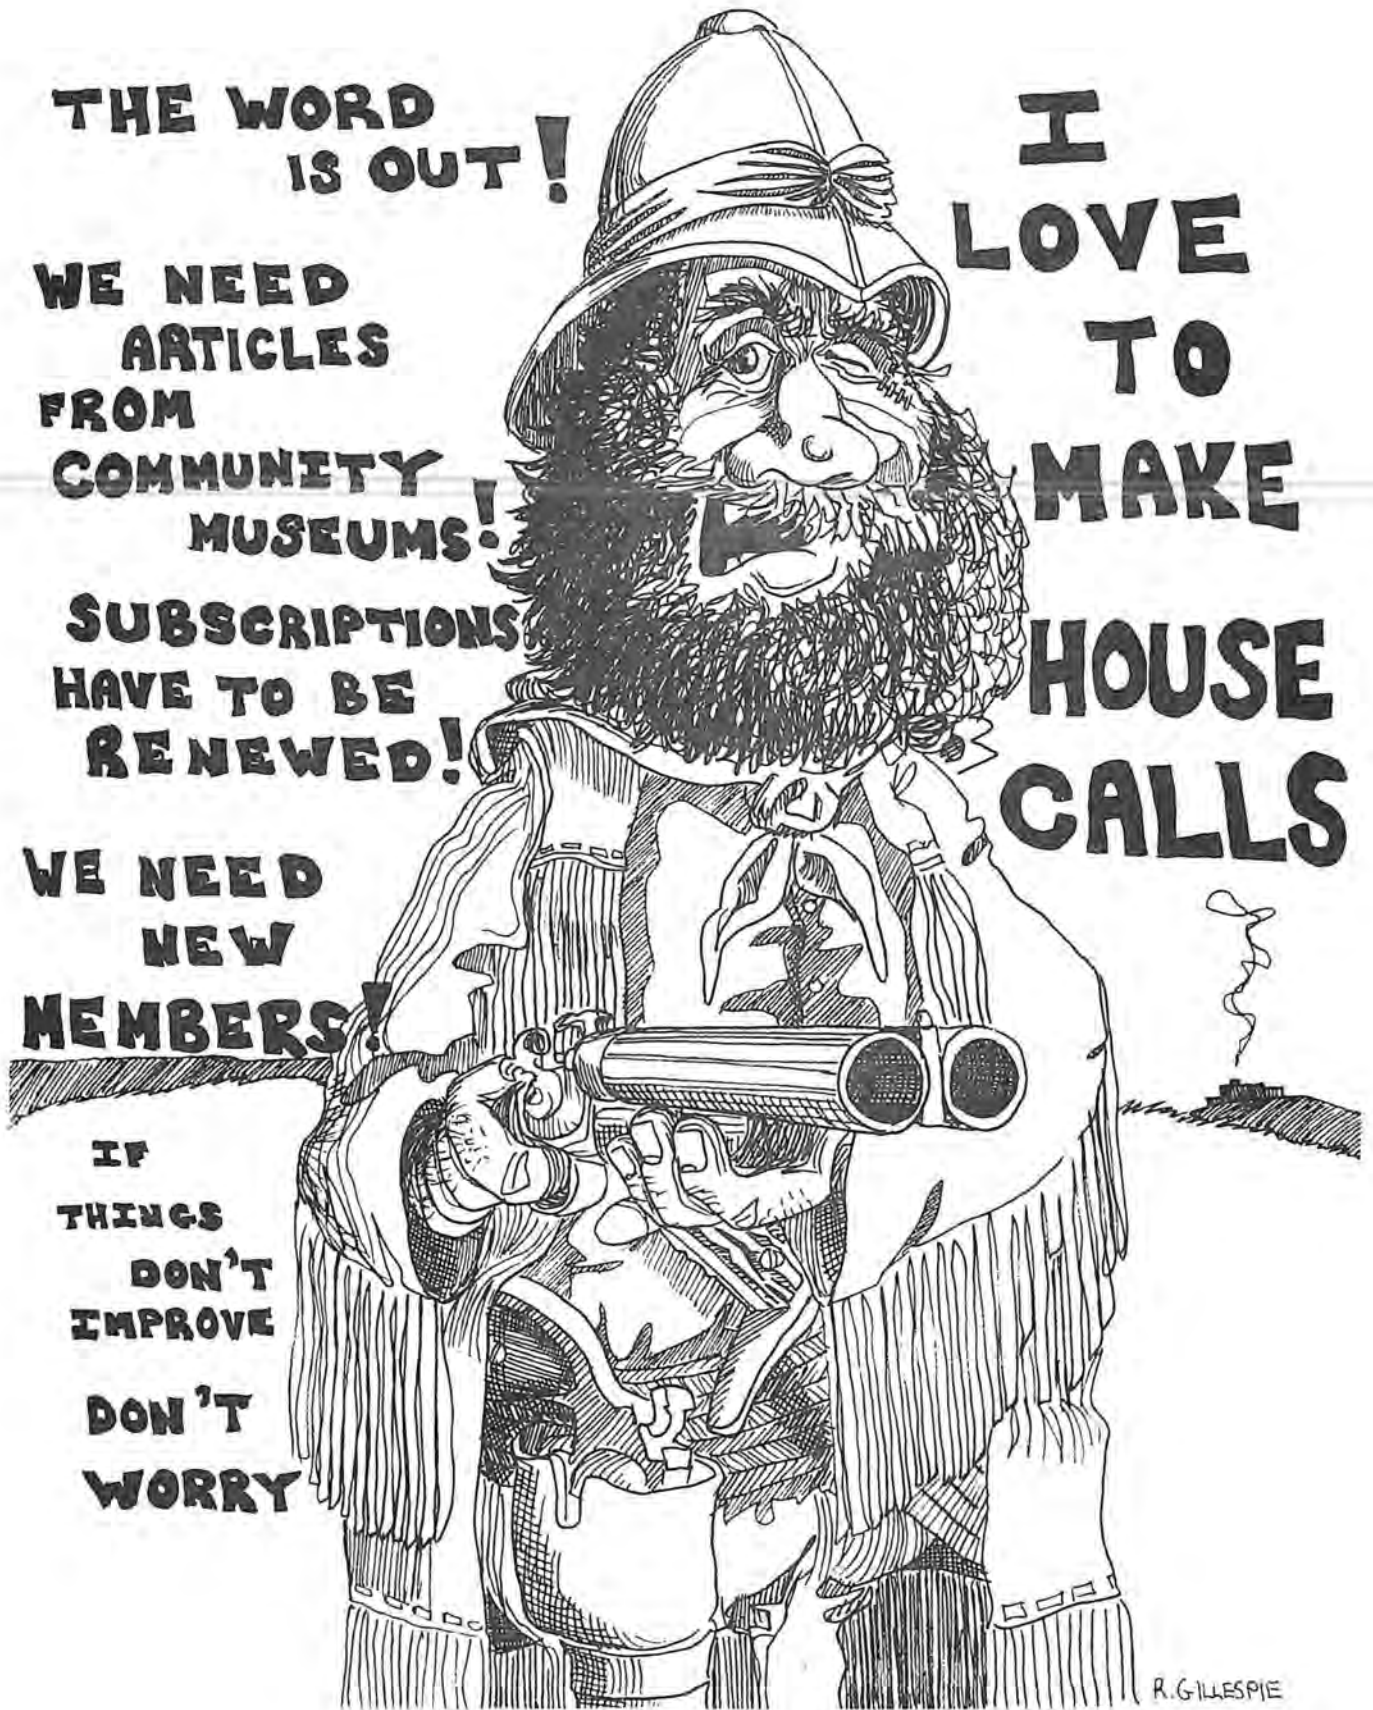 THE WORD
IS OUT!
WE NEED
ARTICLES
FROM
COMMUNITY
MUSEUMS!
SUBSCRIPTIONS
HAVE TO BE
RENEWED!
WE NEED
NEW
MEMBERS!
IF
THINGS
DON'T
IMPROVE
DON'T
WORRY
I
LOVE
TO
MAKE
HOUSE
CALLS
R. GILLESPIE